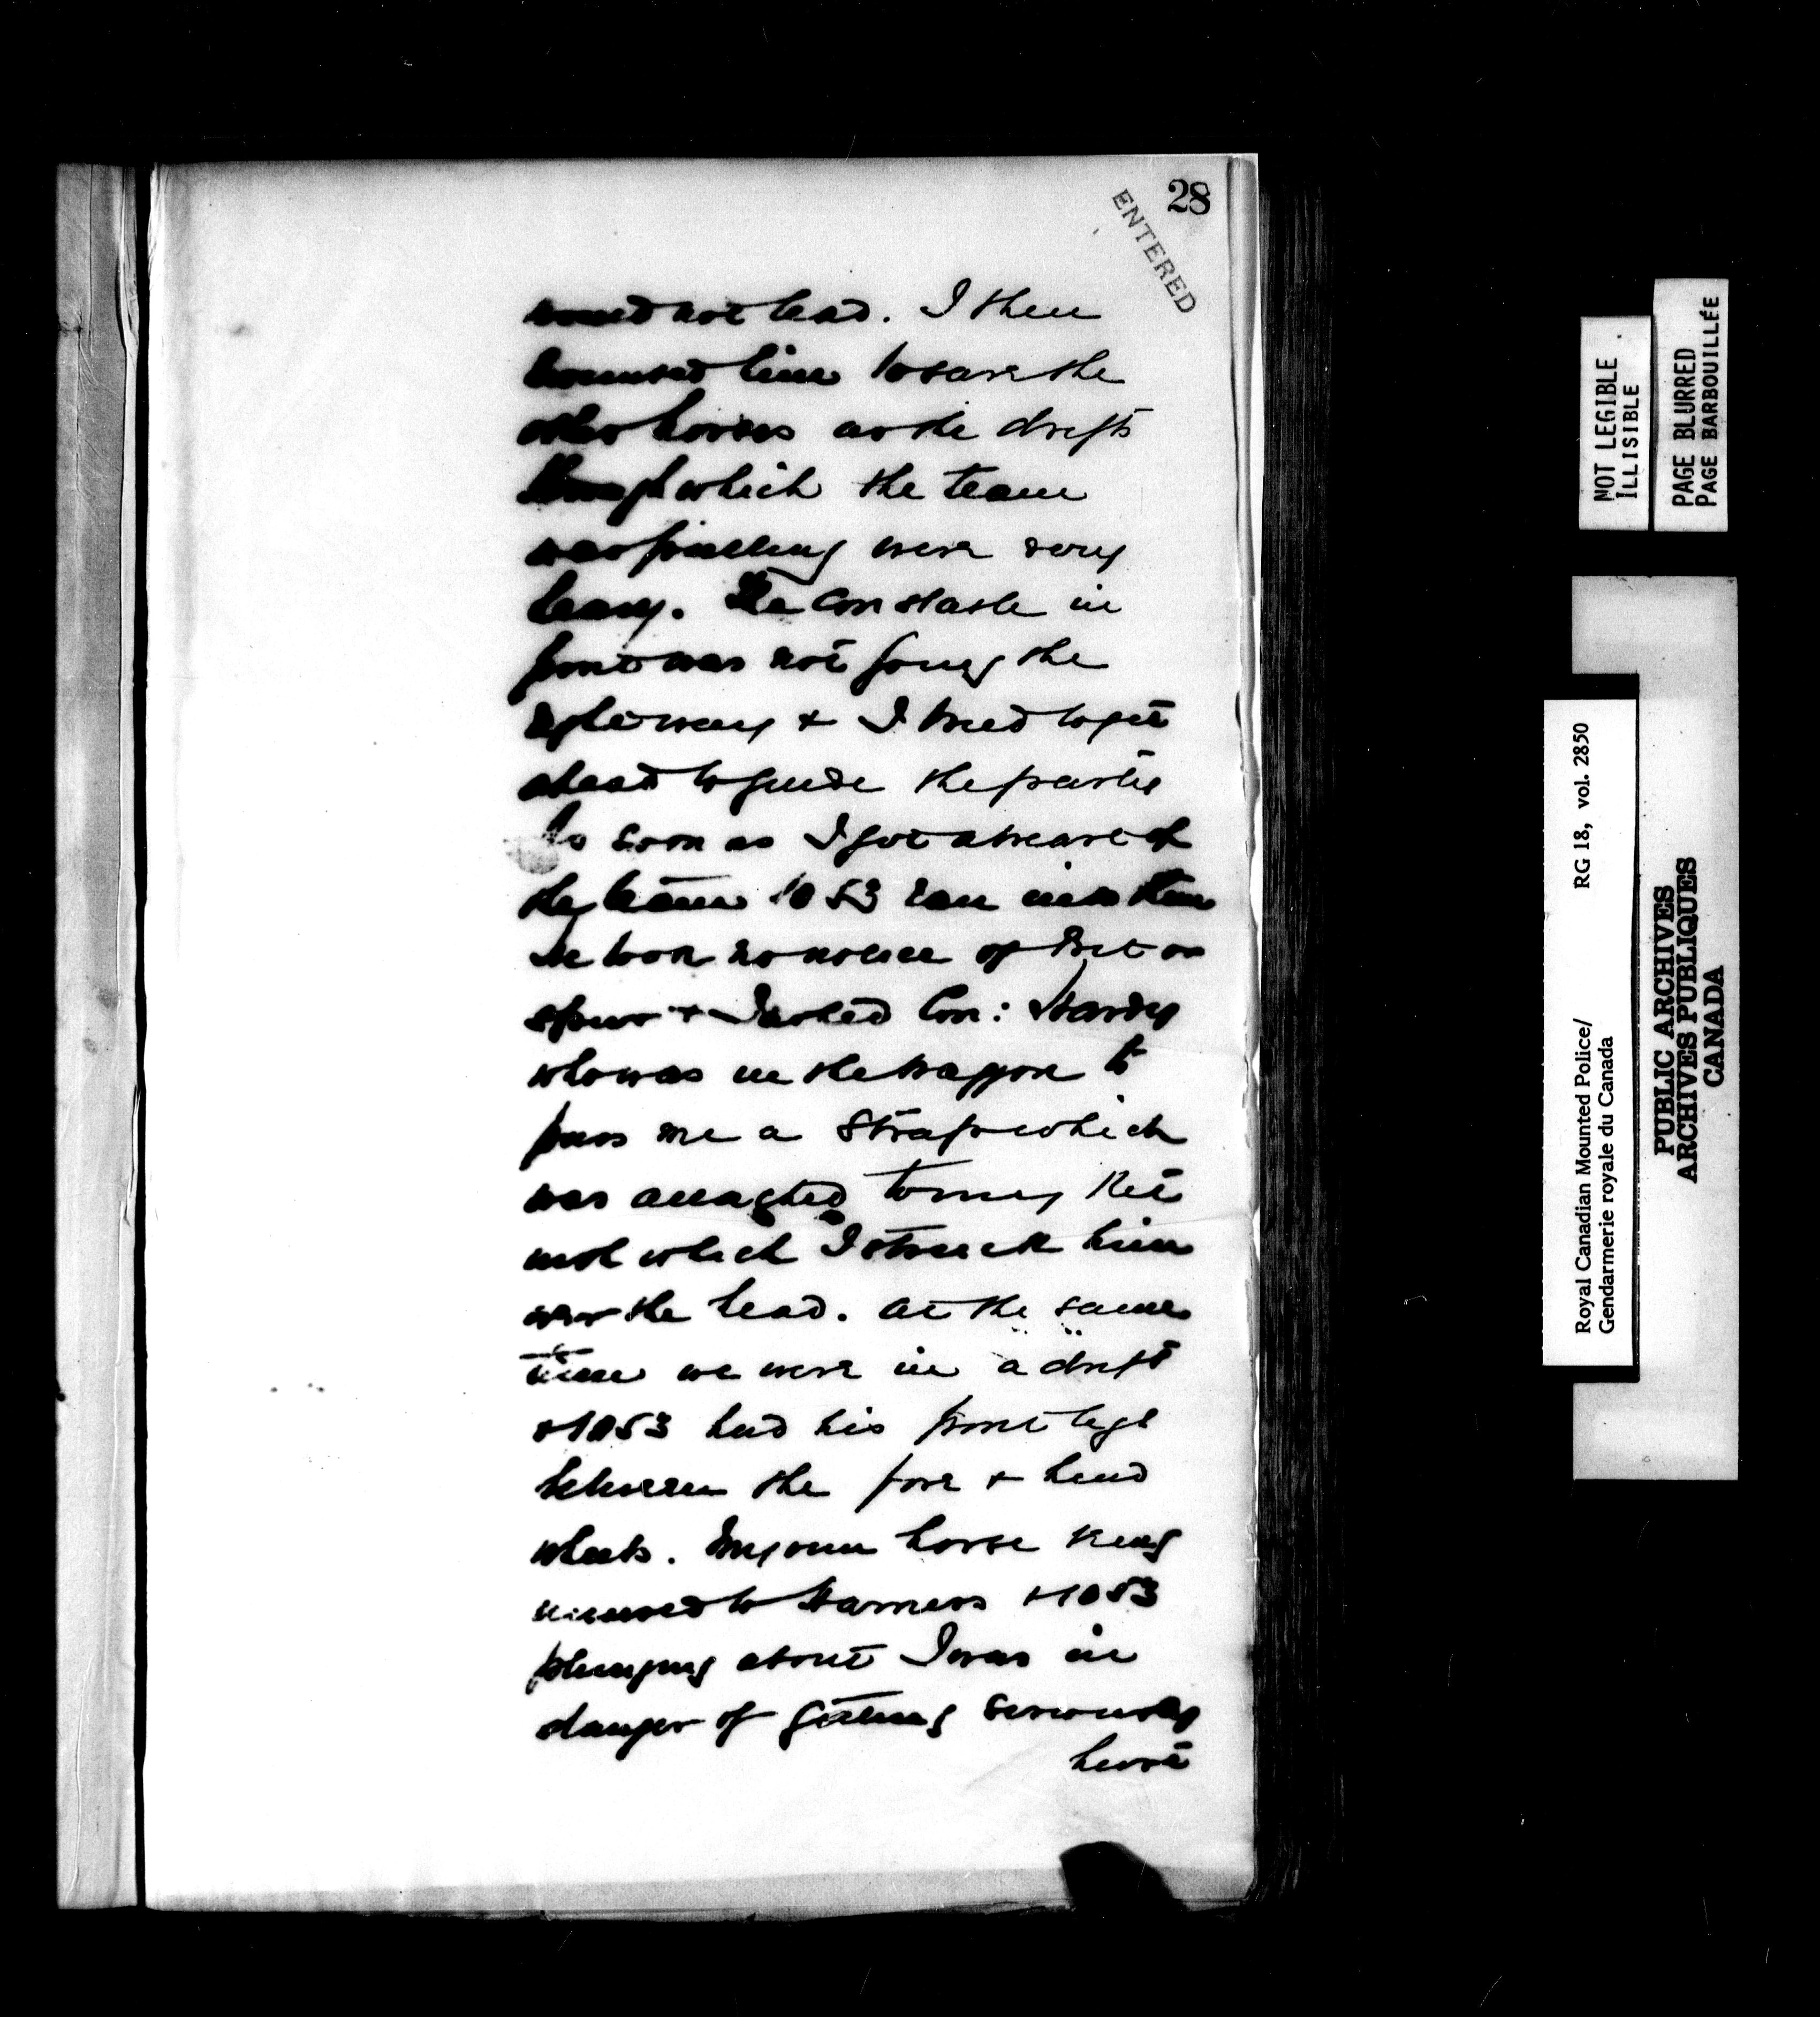 28
ENTERED
would not lead. I then
mounted him to save the
other horses as the drifts
through which the team
was pulling were very
heavy. The Constable in
front was not going the
right way & I tried to get
ahead to guide the parties
As soon as I got abreast of
the team 1053 ran into them
He took no notice of bit or
spur & I asked Con: Hardy
who was in the waggon to
pass me a strap which
was attached to my kit
with which I struck him
over the head. At the same
time we were in a drift
& 1053 had his front legs
between the fore & hind
wheels. My own horse being
unused to Harness & 1053
plunging about I was in
danger of getting seriously
hurt
NOT LEGIBLE
ILLISIBLE
PAGE BLURRED
PAGE BARBOUILLÉE
Royal Canadian Mounted Police/ RG 18, vol. 2850
Gendarmerie royale du Canada
PUBLIC ARCHIVES
ARCHIVES PUBLIQUES
CANADA